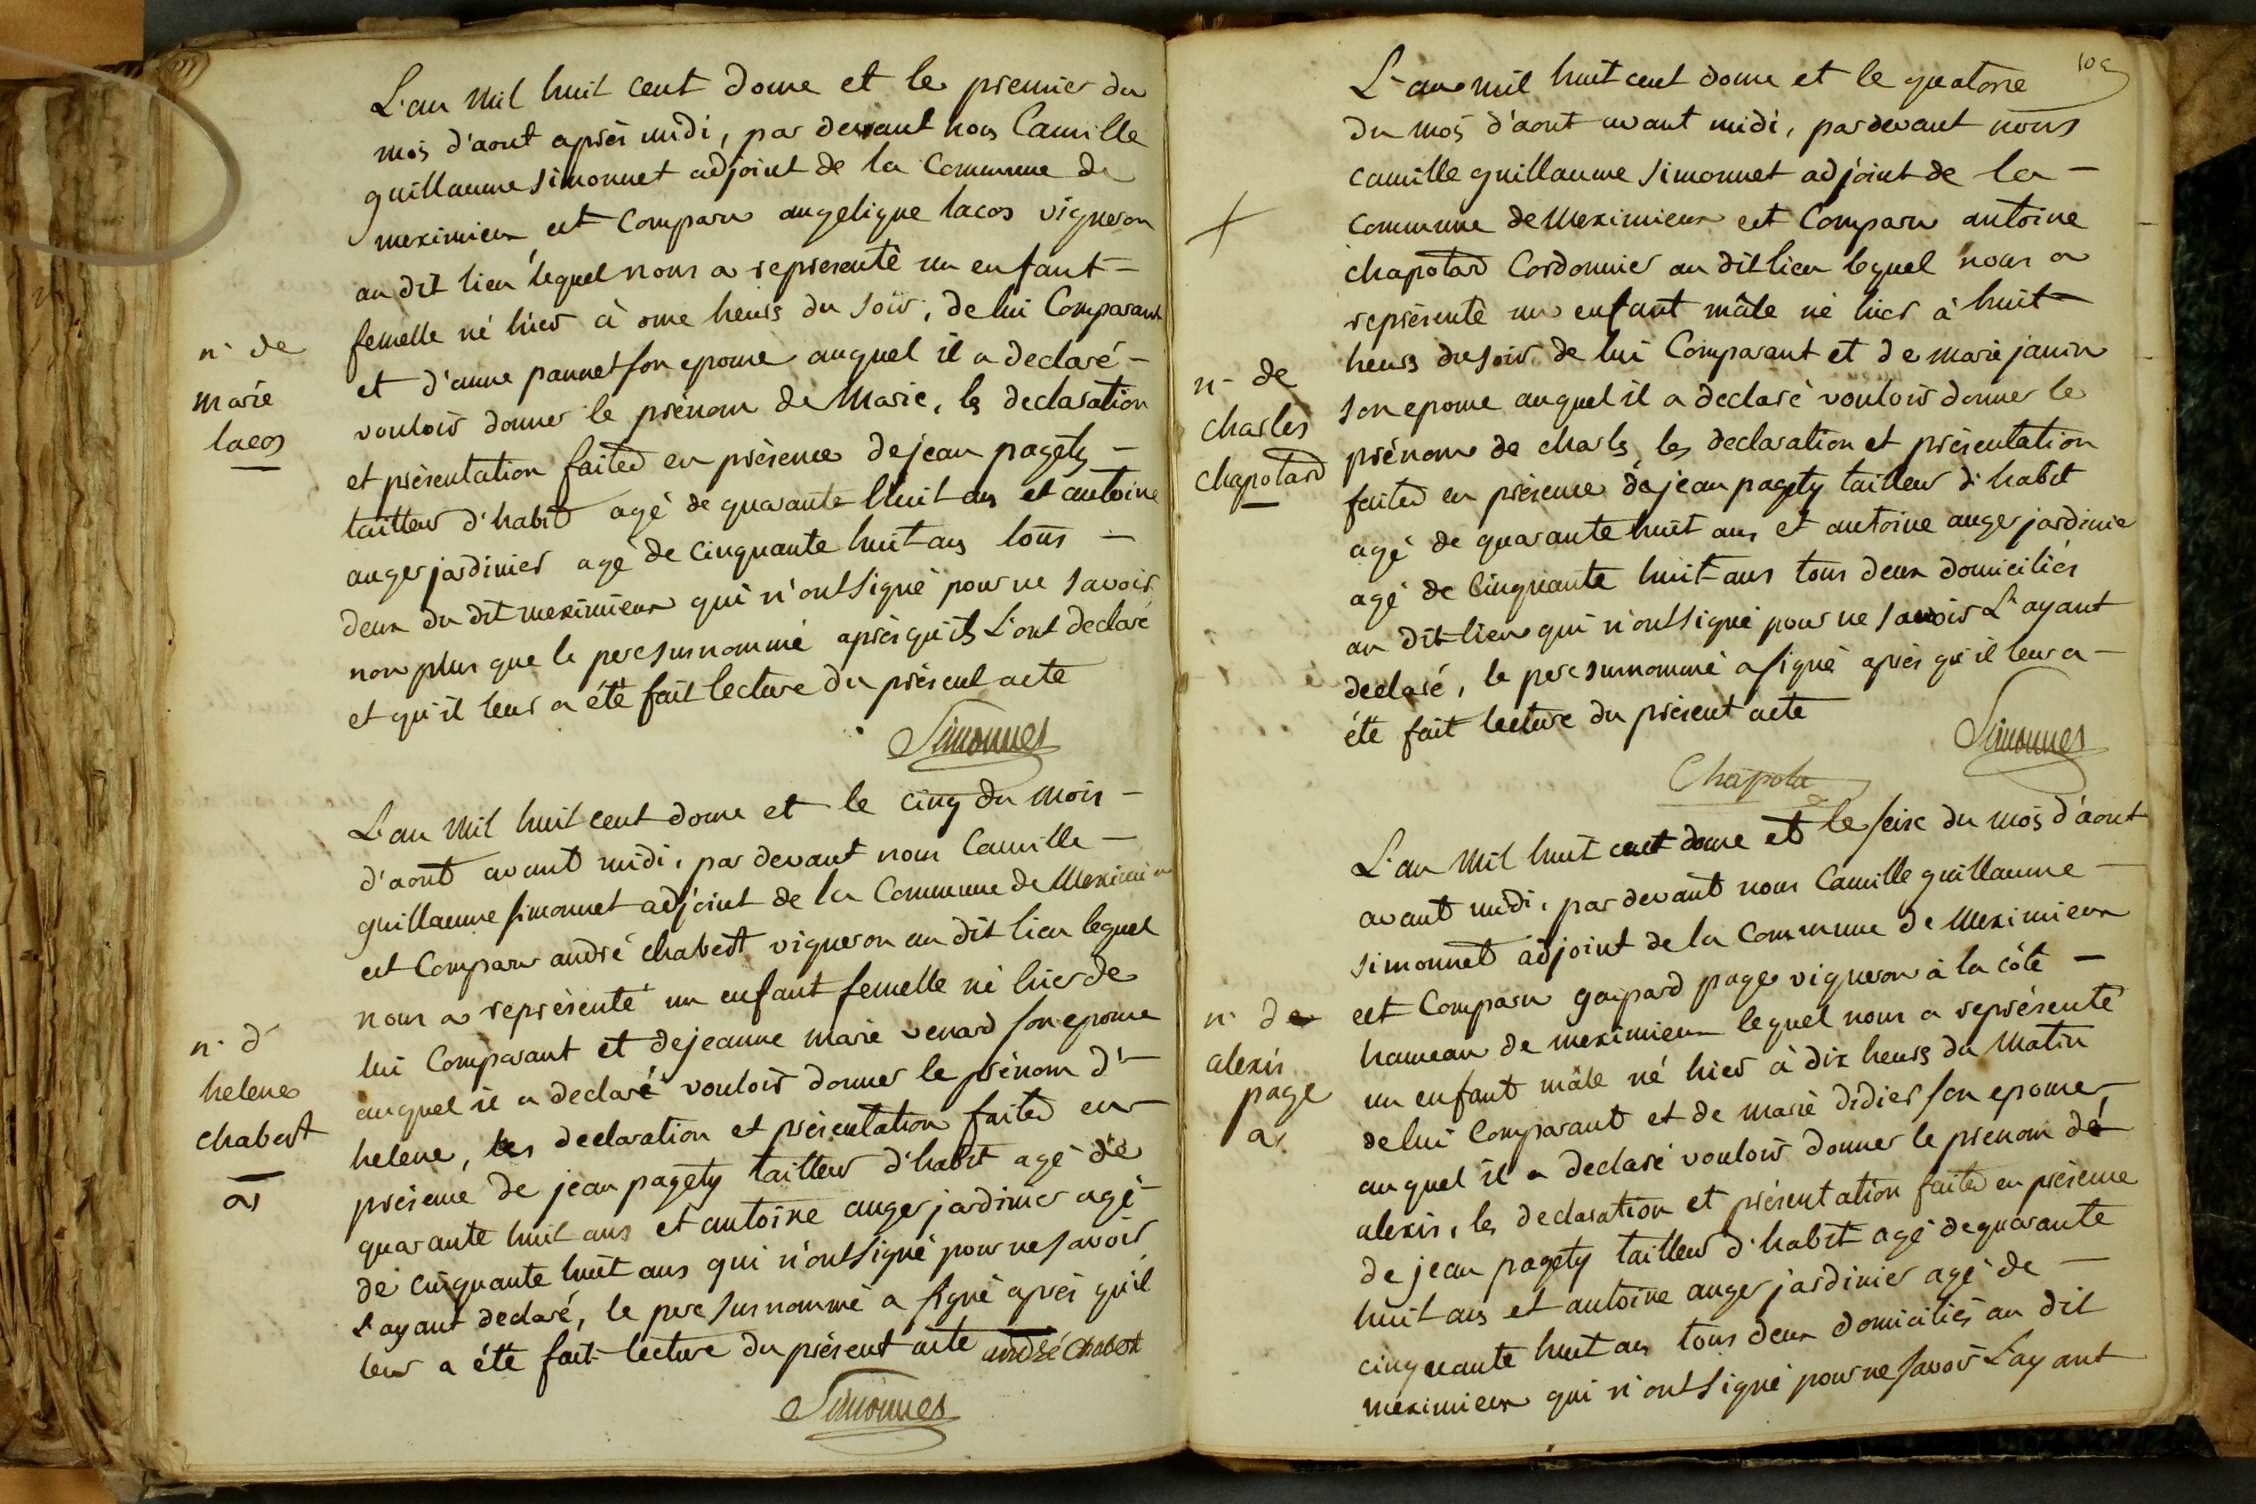 L'an mil huit cent douze et le premier du
mois d'aout après midi, par devant nous Camille
guillaume simonnet adjoint de la Commune de
meximieux est Comparu angelique lacos vigneron
au dit lieu lequel nous a representé un enfant –
femelle né hier à onze heures du soir, de lui Comparant
n. de
marie
lacos
et d'anne pannet son epouse auquel il a declaré –
vouloir donner le prénom de Marie, les declaration
et présentation faites en présence de jean pagety –
tailleur d'habit agé de quarante huit ans et antoine
anger jardinier agé de cinquante huit ans tous –
deux du dit meximieux qui n'ont signé pour ne savoir
non plus que le pere surnommé après qu'ils L'ont declaré
et qu'il leur a été fait lecture du présent acte
Simonnet
L'an mil huit cent douze et le cinq du mois –
d'aout avant midi, par devant nous Camille –
guillaume simonnet adjoint de la Commune de Meximieux
est Comparu andré chabert vigneron au dit lieu lequel
nous a représenté un enfant femelle né hier de
n. d'
helene
chabert
lui Comparant et de jeanne marie venard son epouse
auquel il a declaré vouloir donner le prénom d' –
helene, les declaration et présentation faites en –
présence de jean pagety tailleur d'habit agé de
quarante huit ans et antoine anger jardinier agé
de cinquante huit ans qui n'ont signé pour ne savoir
L'ayant declaré, le pere surnommé a signé après qu'il
leur a été fait lecture du présent acte andré Chabert
Simonnet
L'an mil huit cent douze et le quatorze
du mois d'aout avant midi, par devant nous
camille guillaume simonnet adjoint de la –
commune de Meximieux est Comparu antoine
chapotard Cordonnier au dit lieu lequel nous a
représenté un enfant mâle né hier à huit
n. de
charles
chapotard
heures du soir de lui Comparant et de marie janin
son epouse auquel il a declaré vouloir donner le
prénom de charles, les declaration et présentation
faites en présence de jean pagety tailleur d'habit
agé de quarante huit ans et antoine anger jardinie
agé de cinquante huit ans tous deux domiciliés
au dit lieu qui n'ont signé pour ne savoir L'ayant
declaré, le pere surnommé a signé après qu'il leur a –
été fait lecture du présent acte
Simonnet
Chapota
L'an mil huit cent douze et le seize du mois d'aout
avant midi, par devant nous Camille guillaume –
simonnet adjoint de la Commune de Meximieux
n. de
alexis
page
est Comparu gaspard page vigneron à la côte –
hameau de meximieux lequel nous a représenté
un enfant mâle né hier à dix heures du Matin
de lui Comparant et de marie didier son epouse,
auquel il a declaré vouloir donner le prenom de
alexis, les declaration et présentation faites en présence
de jean pagety tailleur d'habit agé de quarante
huit ans et antoine anger jardinier agé de –
cinquante huit ans tous deux domiciliés au dit
meximieux qui n'ont signé pour ne savoir L'ayant